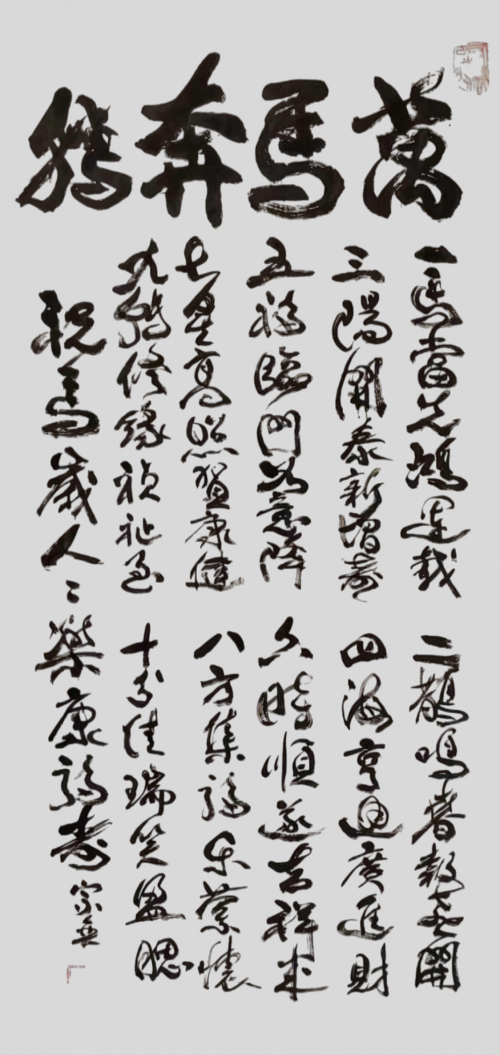 萬馬奔騰
一馬當先鴻運載
二鵲鳴春報喜開
三陽開泰新增壽
四海亨通廣進財
五福臨門如意降
六時順遂吉祥来
七星高照賀康健
八方集福乐縈懷
九鶴修緣禎祉至
十分佳瑞笑盈腮
祝馬歲人〻樂康福壽 宗